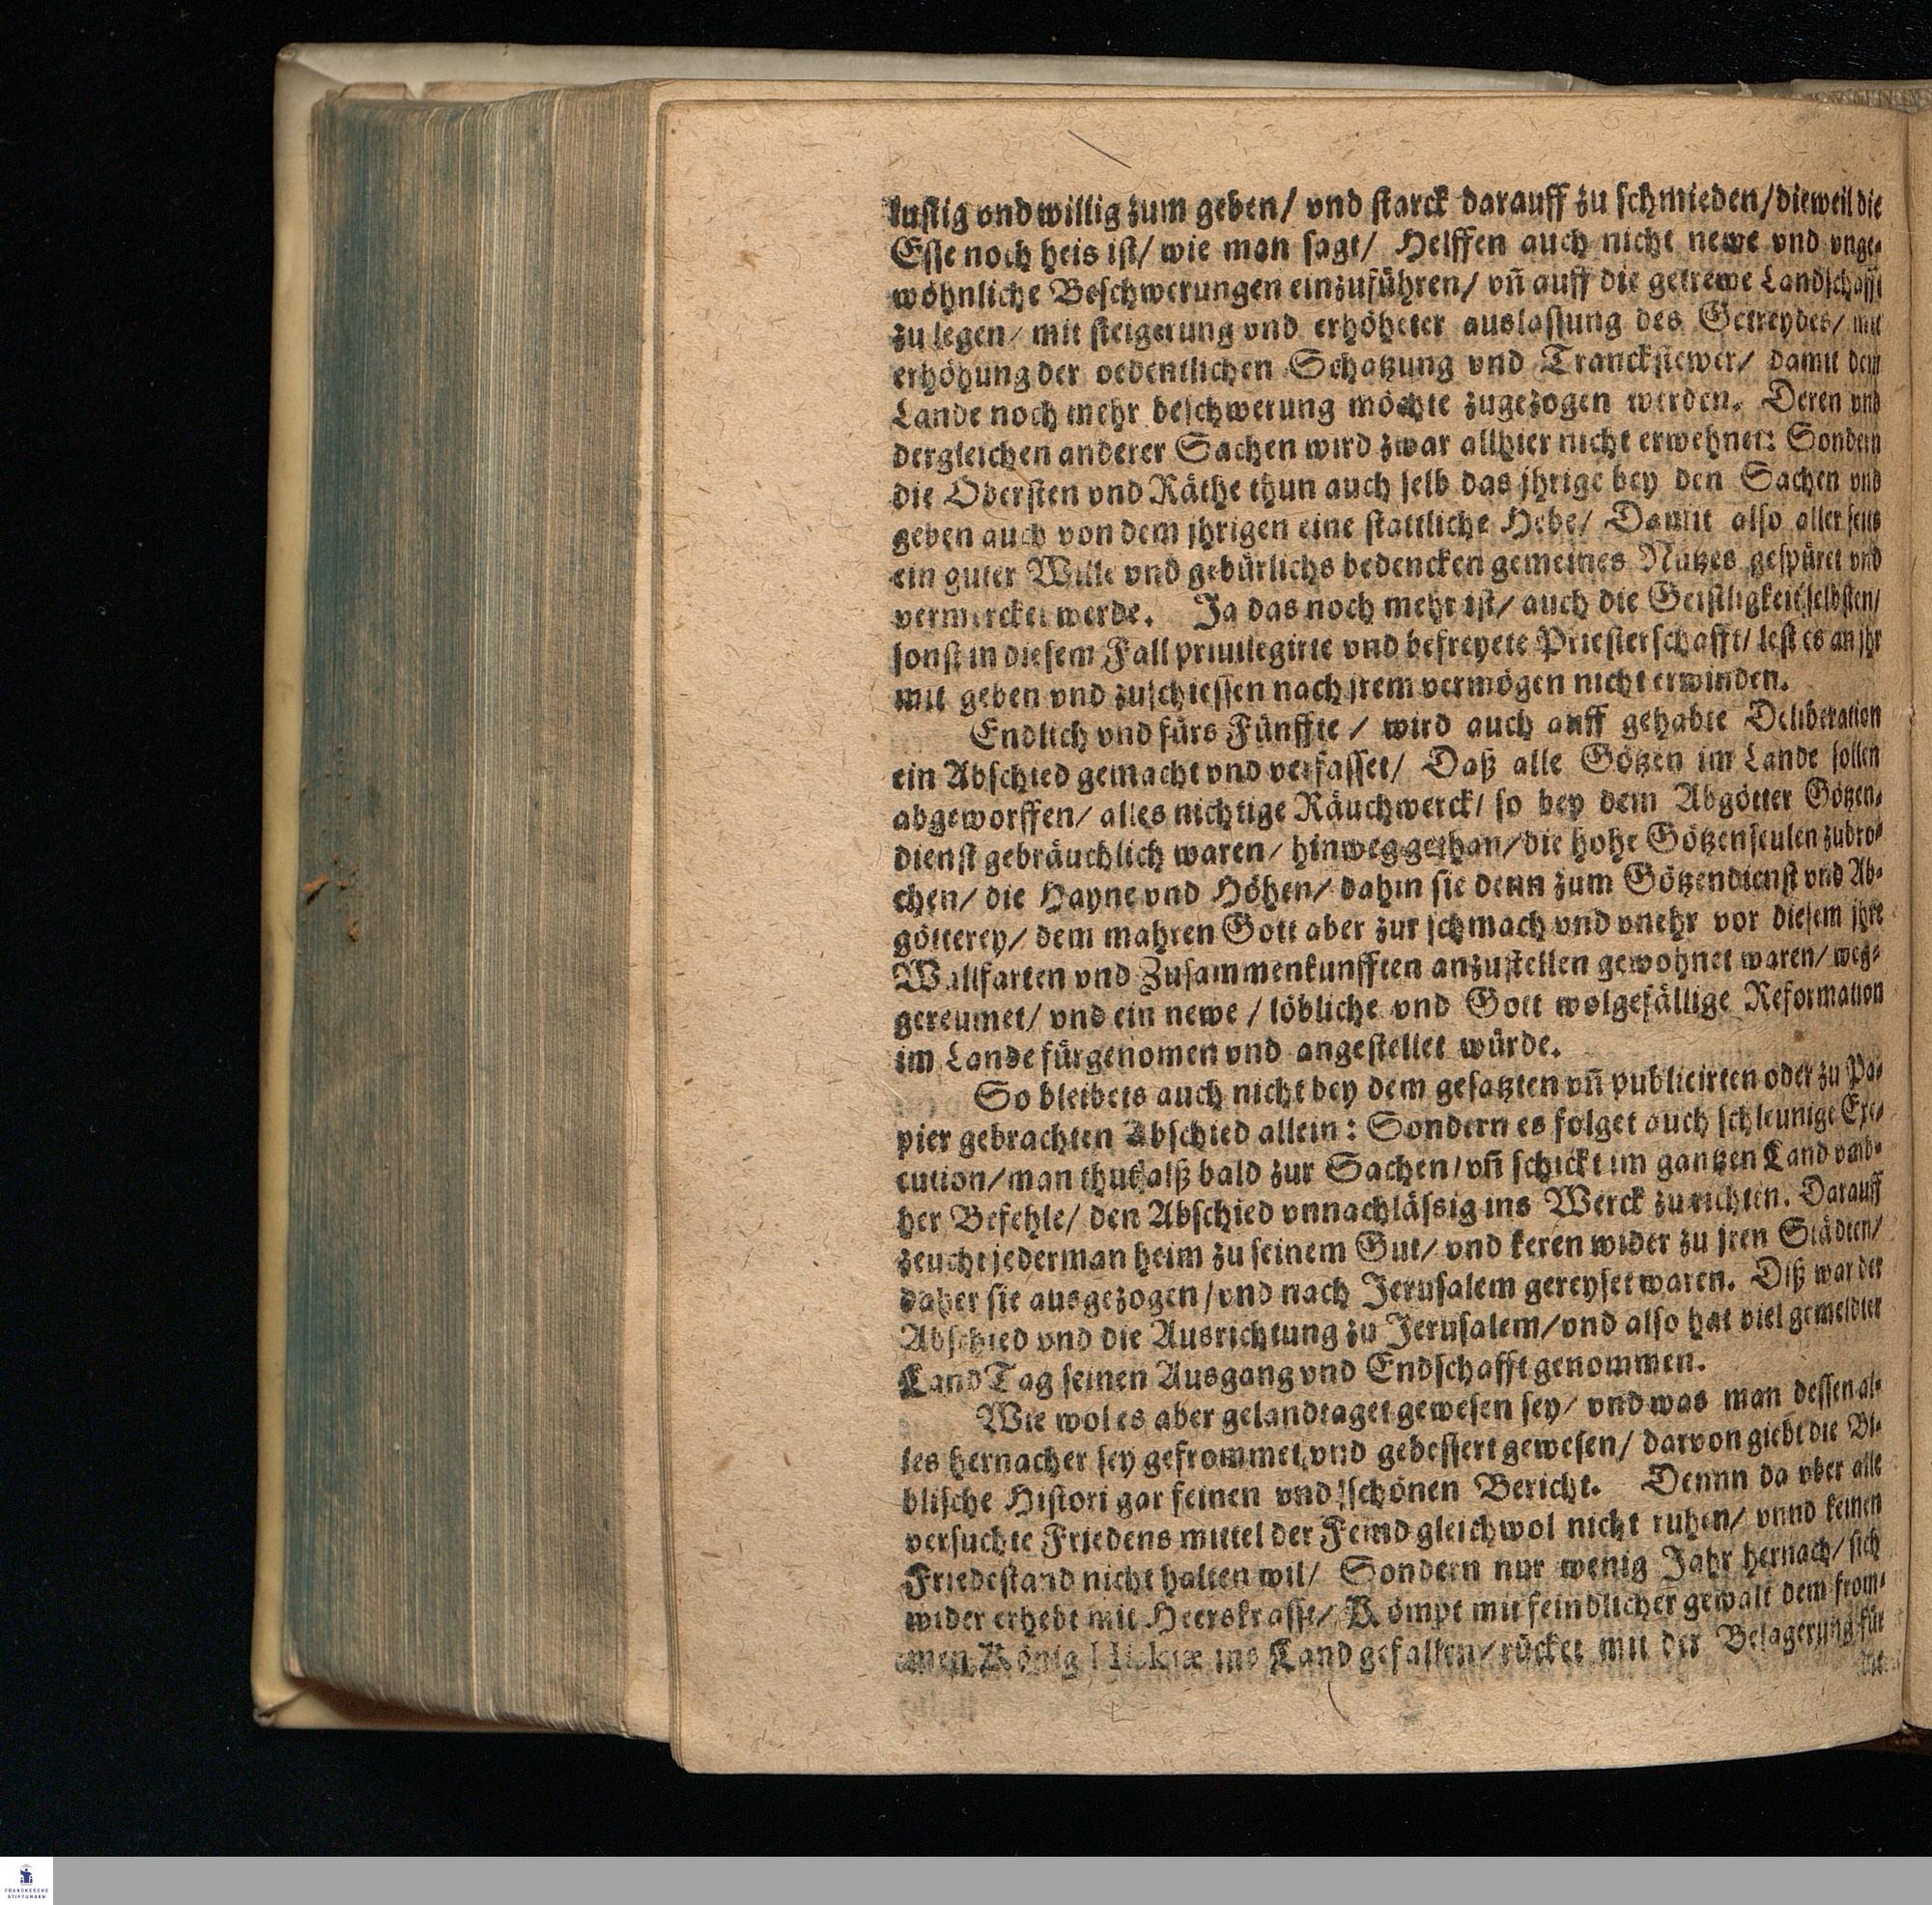 lustig vnd willig zum geben/ vnd starck darauff zu schmieden/ dieweil die
Esse noch heis ist/ wie man sagt/ Helffen auch nicht newe vnd vnge-
wöhnliche Beschwerungen einzuführen/ vñ auff die getrewe Landschafft
zu legen/ mit steigerung vnd erhöheter auslassung des Getreydes/ mit
erhöhung der oedentlichen Schatzung vnd Tranckstewer/ damit dem
Lande noch mehr beschwerung möchte zugezogen werden. Deren vnd
dergleichen anderer Sachen wird zwar allhier nicht erwehnet: Sondern
die Obersten vnd Räthe thun auch selb das jhrige bey den Sachen vnd
geben auch von dem jhrigen eine stattliche Hebe/ Damit also aller seits
ein guter Wille vnd gebürlichs bedencken gemeines Nutzes gespüret vnd
vermercket werde. Ja das noch mehr ist/ auch die Geistligkeit selbsten/
sonst in diesem Fall priuilegirte vnd befreyete Priesterschafft/ lest es an jhr
mit geben vnd zuschiessen nach jrem vermögen nicht erwinden.
Endlich vnd fürs Fünffte/ wird auch auff gehabte Deliberation
ein Abschied gemacht vnd verfasset/ Daß alle Götzen im Lande sollen
abgeworffen/ alles nichtige Räuchwerck/ so bey dem Abgötter Götzen-
dienst gebräuchlich waren/ hinweg gethan/ die hohe Götzenseulen zubro-
chen/ die Hayne vnd Höhen/ dahin sie denn zum Götzendienst vnd Ab-
götterey/ dem mahren Gott aber zur schmach vnd vnehr vor diesem jhre
Wallfarten vnd Zusammenkunfften anzustellen gewohnet waren/ weg-
gereumet/ vnd ein newe/ löbliche vnd Gott wolgefällige Reformation
im Lande fürgenomen vnd angestellet würde.
So bleibets auch nicht bey dem gesatzten vñ publicirten oder zu Pa-
pier gebrachten Abschied allein: Sondern es folget auch schleunige Exe-
cution/ man thut alß bald zur Sachen/ vñ schickt im gantzen Land vmb-
her Befehle/ den Abschied vnnachlässig ins Werck zu richten. Darauff
zeucht jederman heim zu seinem Gut/ vnd keren wider zu jren Städten/
daher sie ausgezogen/ vnd nach Jerusalem gereyset waren. Diß war der
Abschied vnd die Ausrichtung zu Jerusalem/ vnd also hat viel gemeldter
Land Tag seinen Ausgang vnd Endschafft genommen.
Wie wol es aber gelandtaget gewesen sey/ vnd was man dessen al-
les hernacher sey gefrommet vnd gebessert gewesen/ darvon giebt die Bi-
blische Histori gar feinen vnd schönen Bericht. Dennn da vber alle
versuchte Friedens mittel der Feind gleichwol nicht ruhen/ vnnd keinen
Friedestand nicht halten wil/ Sondern nur wenig Jahr hernach/ sich
wider erhebt mit Heerskrafft/ Kömpt mit feindlicher gewalt dem from-
men König Hiskiæ ins Land gefallen/ rücket mit der Belagerung für
die
FRANCKESCHE
STIFTUNGEN